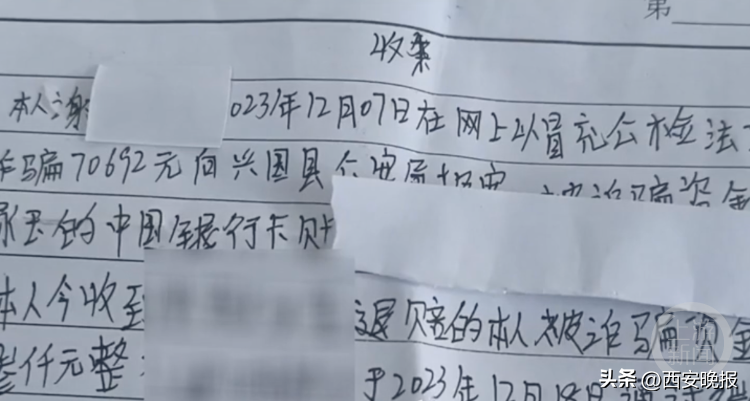 第
收案
本人谢 023年12月07日在网上以冒充公检法
诈骗70692元向兴国县公安局报案 被诈骗资金
的中国银行卡账
本人今收到 退赔的本人被诈骗资金
叁仟元整 于2023年12月18日通过
头条 @西安晚报